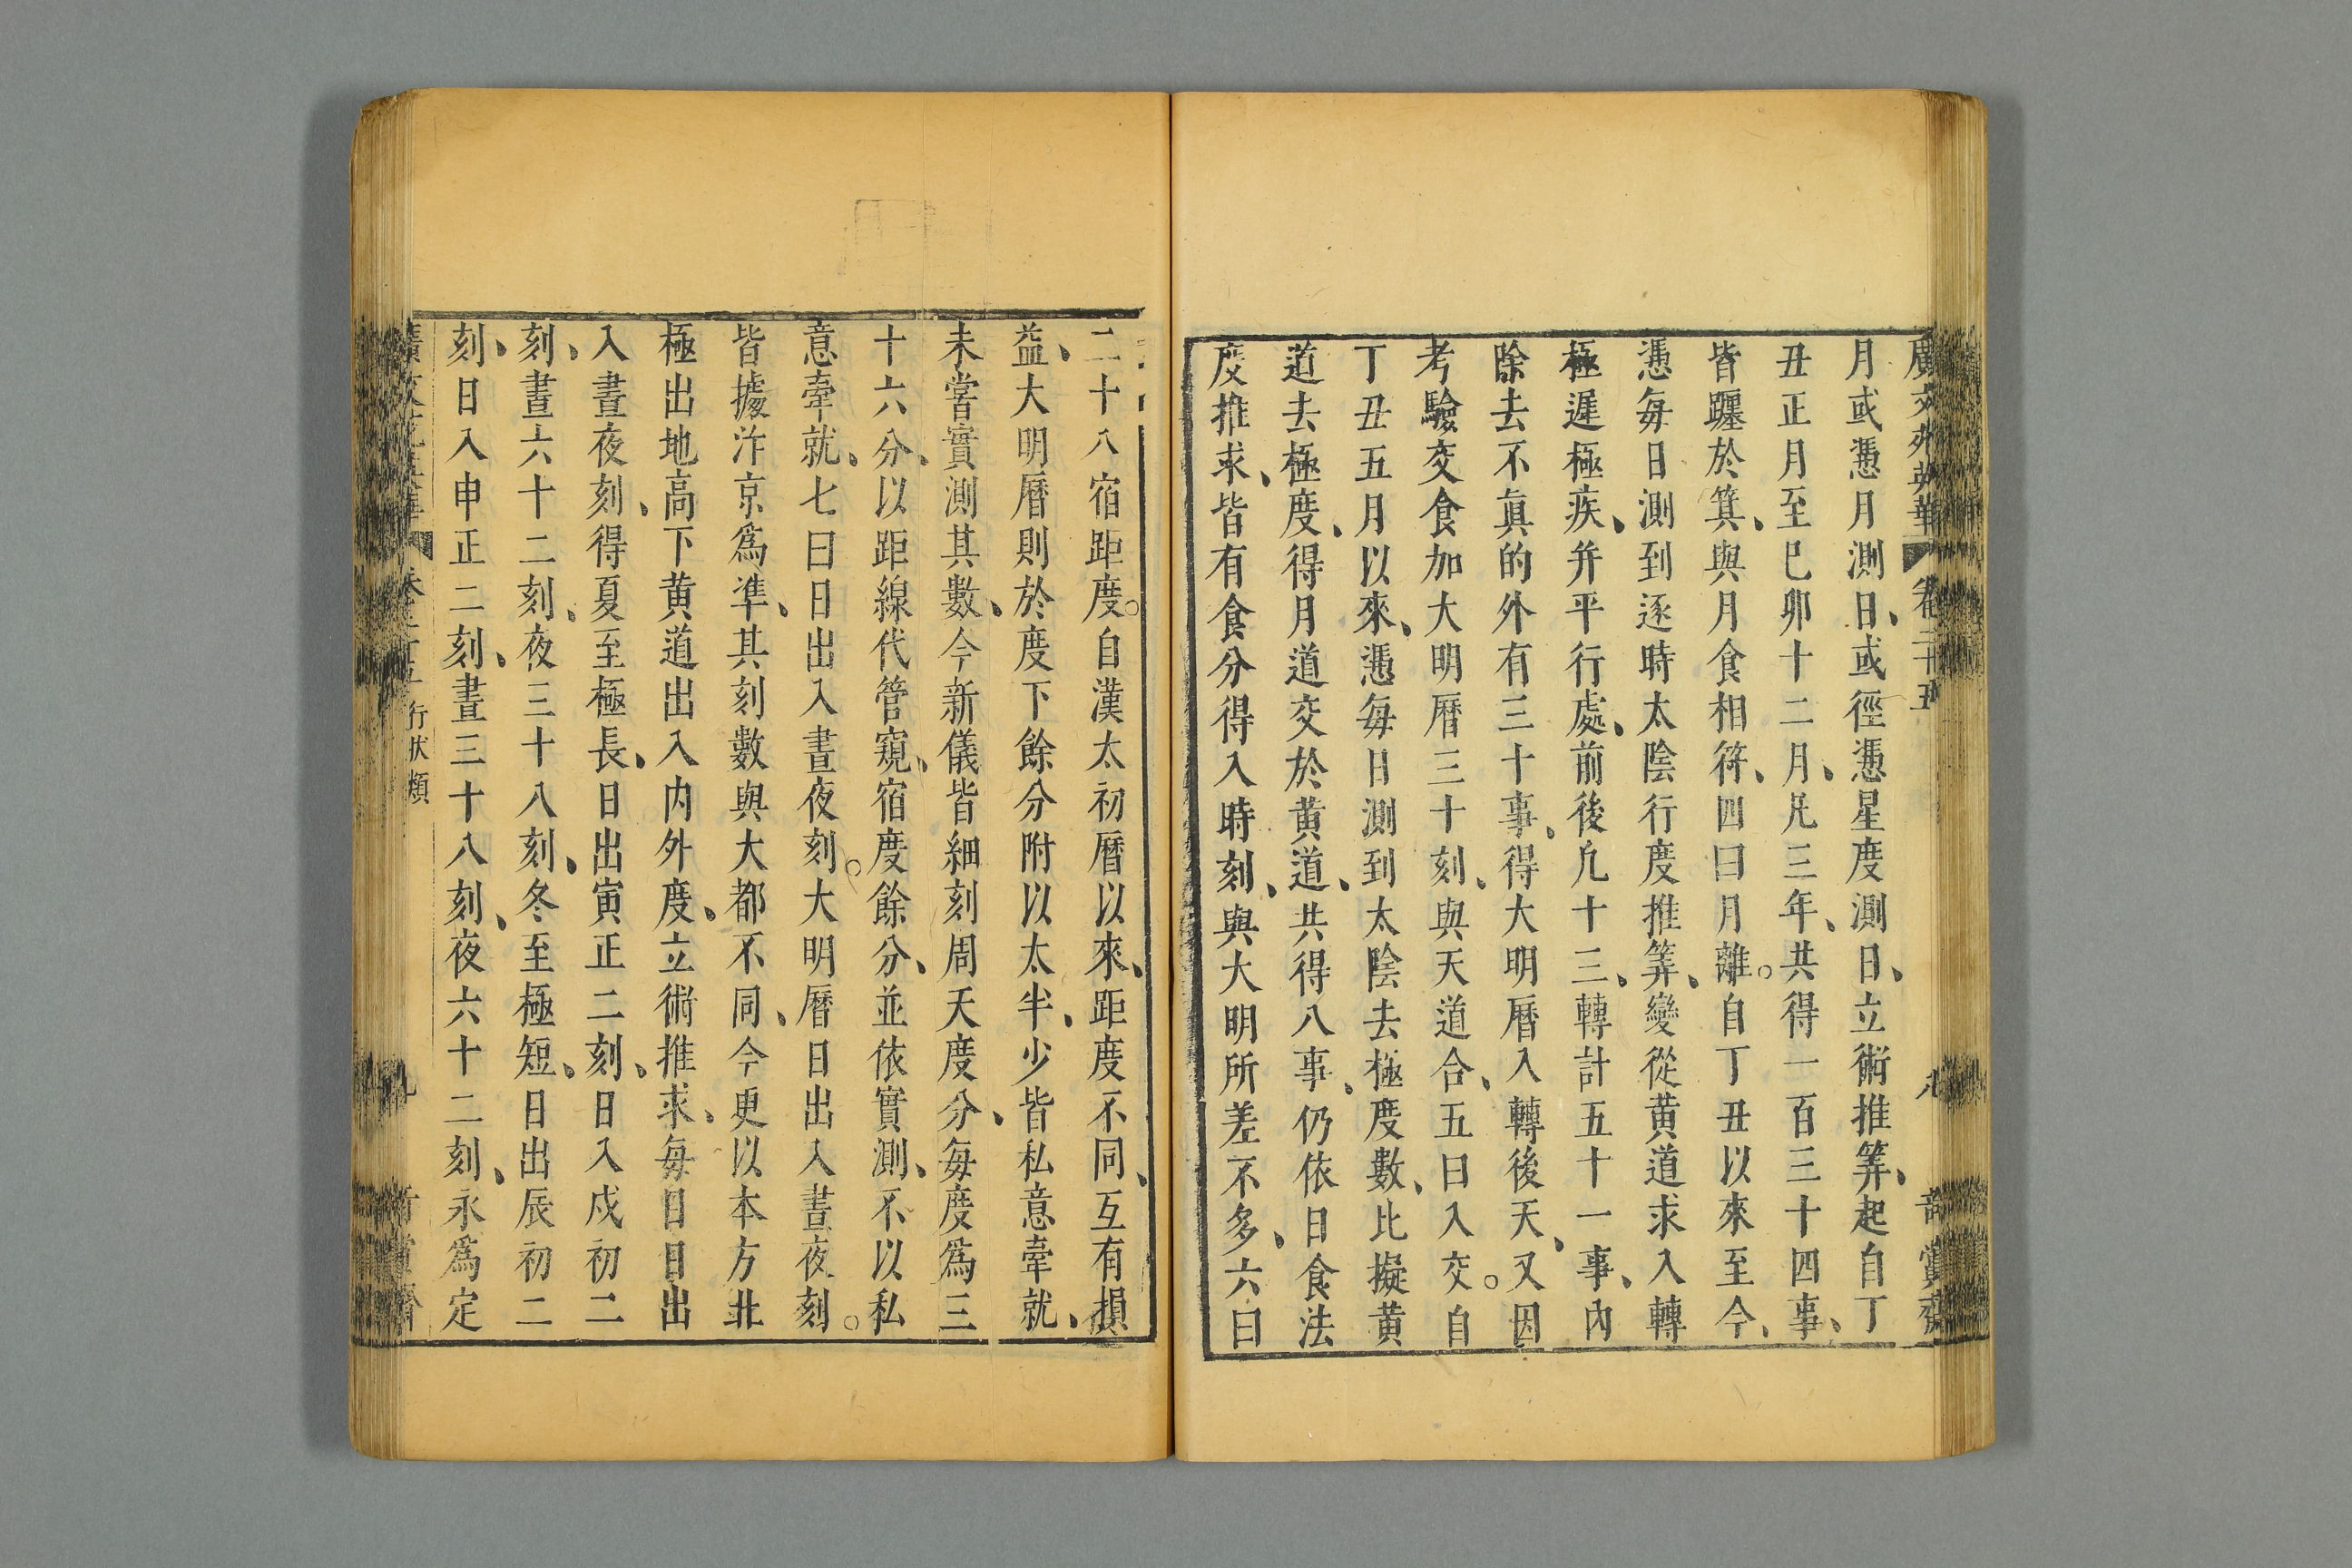 廣文苑英華 卷二十五 八 韵賞齋
月或憑月測日、或徑憑星度測日、立術推筭、起自丁
丑正月至已卯十二月、凡三年、共得一百三十四事、
皆躔於箕、與月食相符、四曰月離。自丁丑以來至今、
憑每日測到逐時太陰行度推筭、變從黄道求入轉
極遲極疾、并平行處、前後凢十三、轉計五十一事、內
除去不眞的外有三十事、得大明曆入轉後天、又因
考驗交食加大明曆三十刻、與天道合、五曰入交。自
丁丑五月以來、憑每日測到太陰去極度數、比擬黄
道去極度、得月道交於黄道、共得八事、仍依日食法
度推求、皆有食分得入時刻、與大明所差不多、六曰
二十八宿距度。自漢太初曆以來、距度不同、互有損
益、大明曆則於度下餘分附以太半、少皆私意牽就、
未甞實測其數、今新儀皆細刻周天度分、每度爲三
十六分、以距線代管窺、宿度餘分、並依實測、不以私
意牽就、七曰日出入晝夜刻。大明曆日出入晝夜刻。
皆據汴京爲準、其刻數與大都不同、今更以本方北
極出地高下黄道出入内外度、立術推求、每日日出
入晝夜刻、得夏至極長、日出寅正二刻、日入戍初二
刻、晝六十二刻、夜三十八刻、冬至極短、日出辰初二
刻、日入申正二刻、晝三十八刻、夜六十二刻、永爲定
行狀類 九